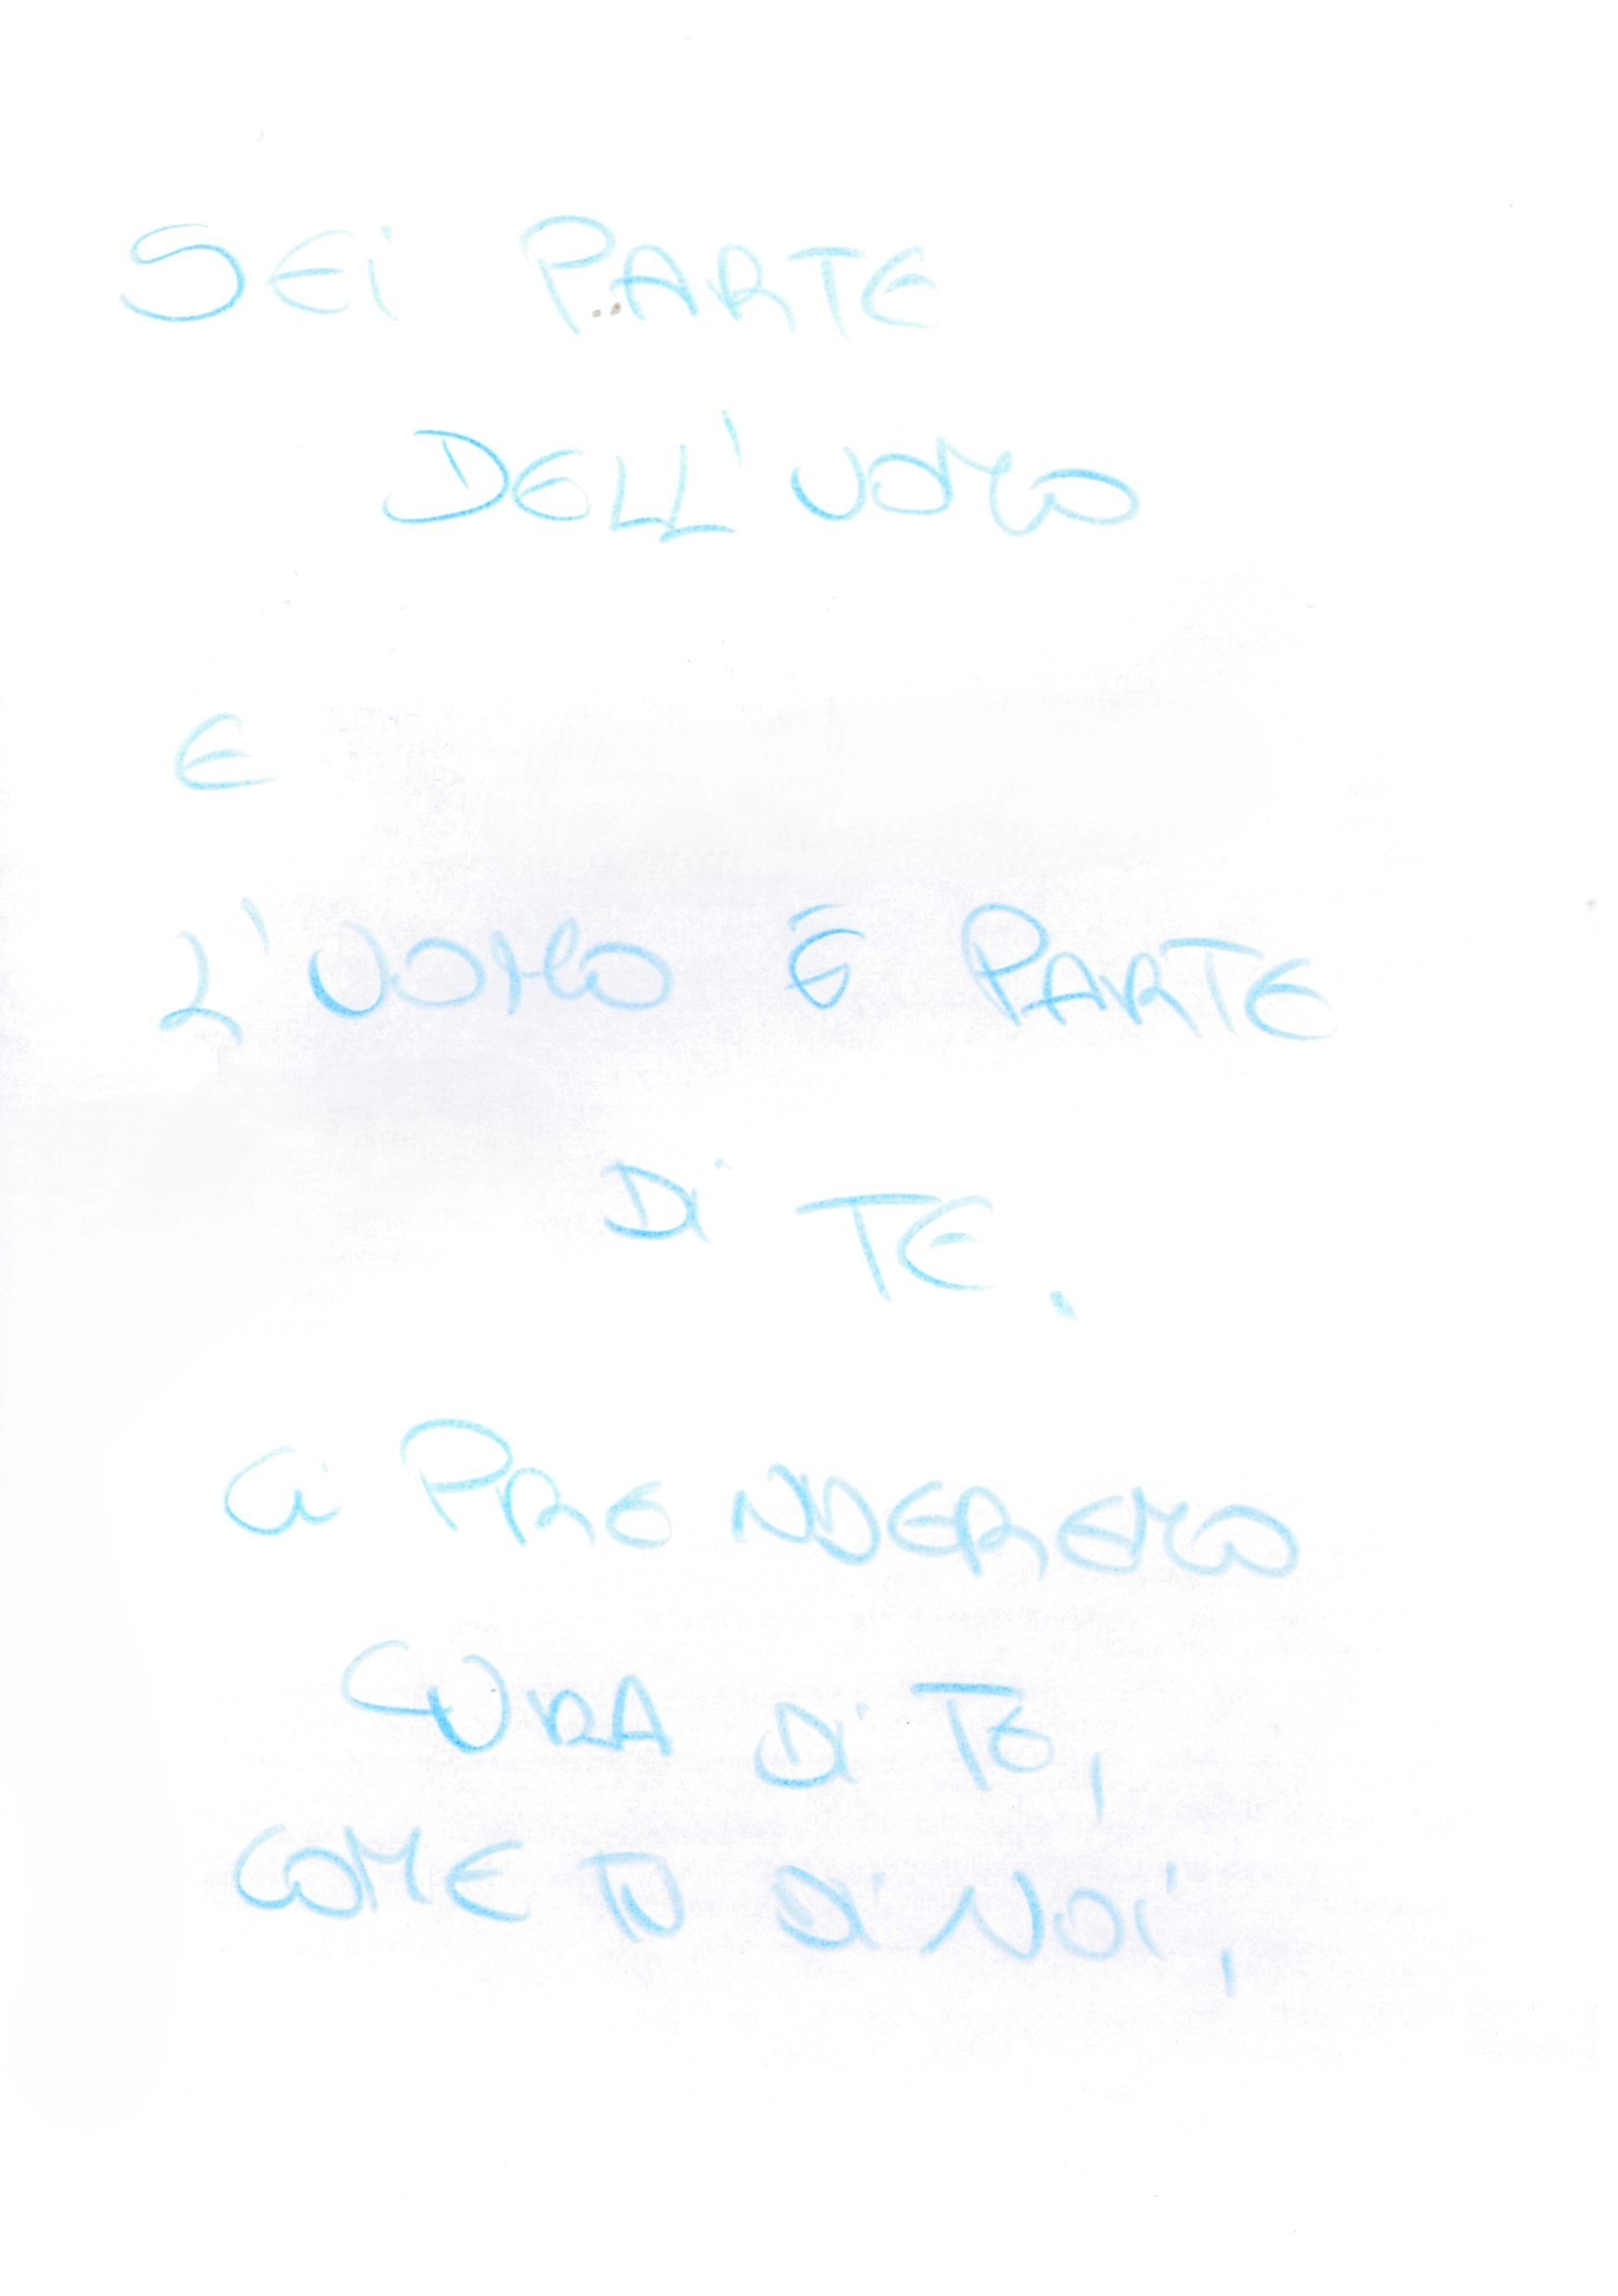 SEI PARTE
DELL'UOMO
E
L'UOMO È PARTE
DI TE.
CI PRENDEREMO
CURA DI TE,
COME TU DI NOI,